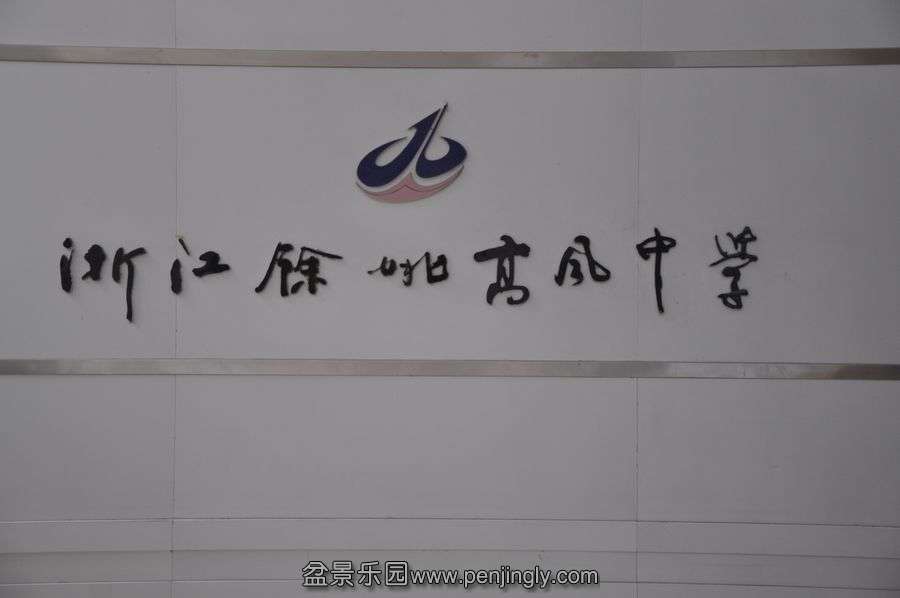 浙江余姚高风中学
盆景乐园www.penjingly.com